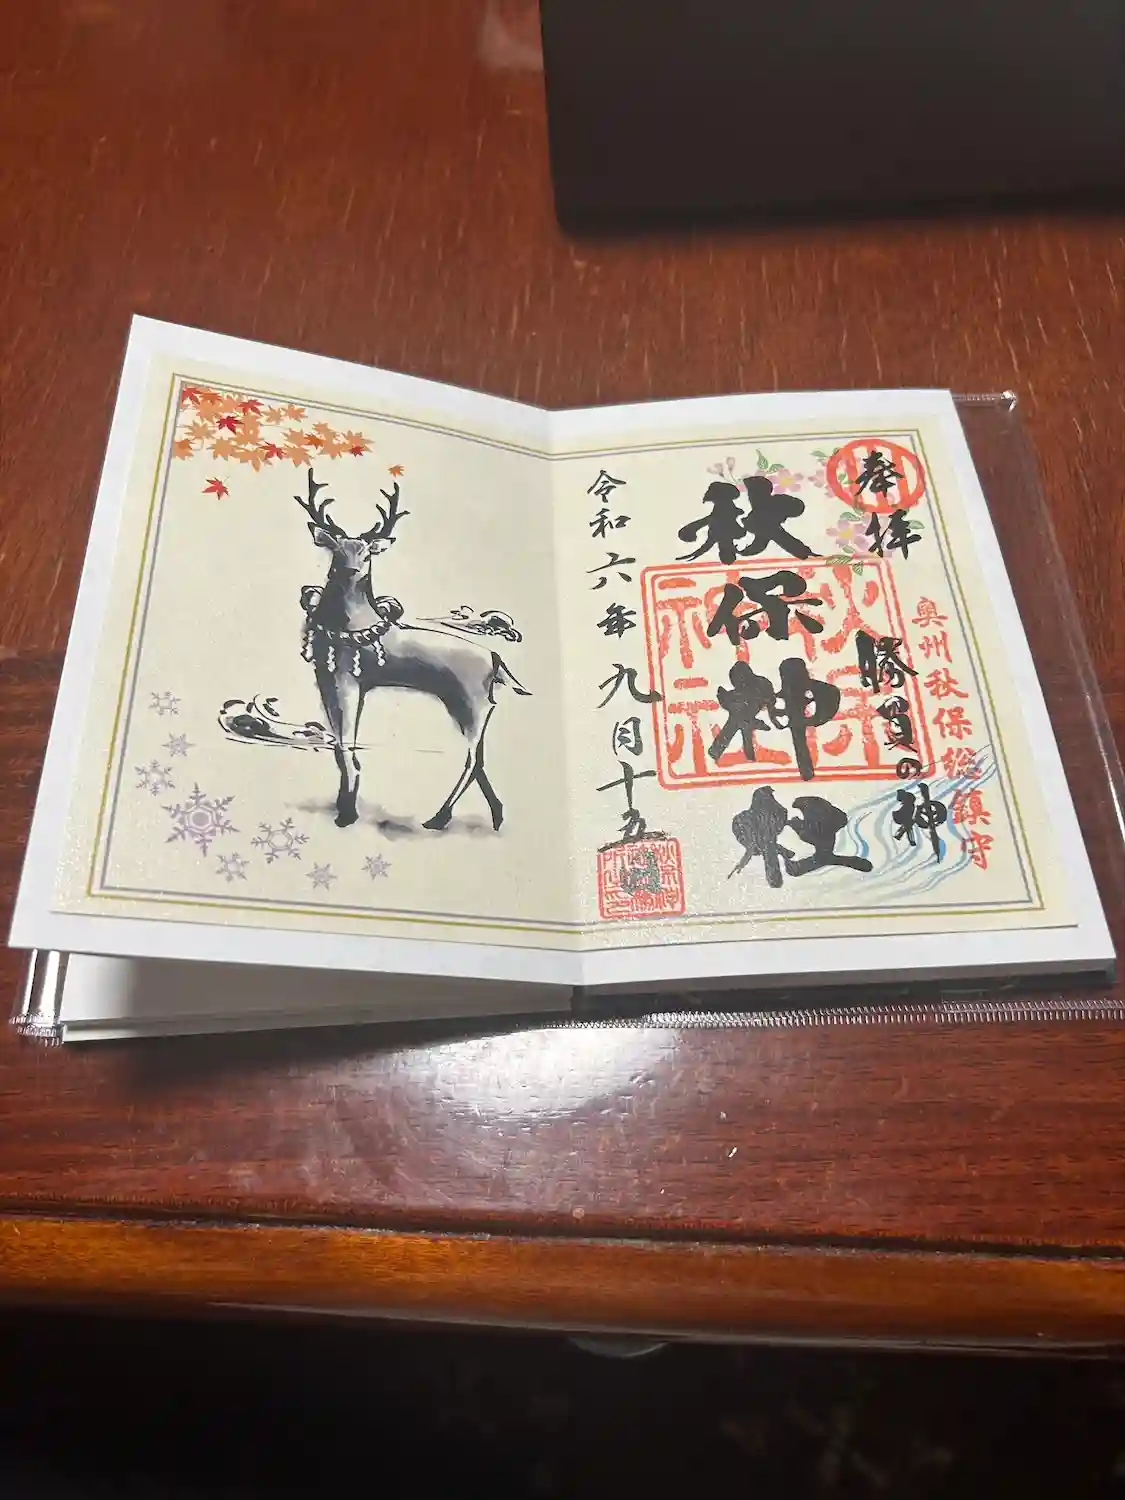 奉拝
奥州秋保総鎮守
勝負の神
秋保神社
秋保
神社
令和六年九月十五